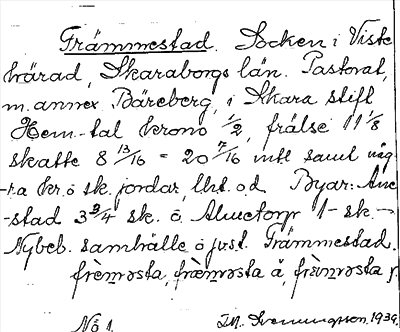 Främmestad. Socken i Viste
härad, Skaraborgs län. Pastorat,
m. annex Bäreberg, i Skara stift
Hem-tal krono 1/2, frälse 11 1/8
skatte 8 13/16 = 20 7/16 intl samt någ-
-ra kr. o sk. jordar, lht. o.d Byar:
-stad 3 3/4 sk. o Almetorp 1 sk. -
Nybeb. samhälle o jvst. Främmestad.
frèmosta, fræmosta å,
No 1. Sveningsson. 1939.